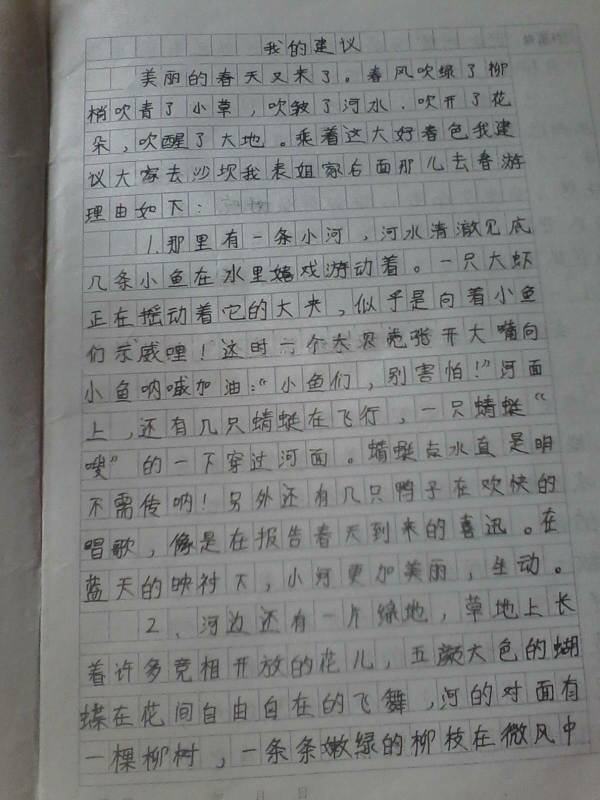 我的建议
美丽的春天又来了。春风吹绿了柳
梢吹青了小草，吹皱了河水．吹开了花
朵，吹醒了大地。乘着这大好春色我建
议大家去沙坝我表姐家后面那儿去春游
理由如下：
1.那里有一条小河，河水清澈见底
几条小鱼在水里嬉戏游动着。一只大虾
正在摇动着它的大夹，似乎是向着小鱼
们示威哩！这时一个大贝壳张开大嘴向
小鱼呐喊加油：“小鱼们，别害怕！”河面
上，还有几只蜻蜓在飞行，一只蜻蜓“
嗖”的一下穿过河面。蜻蜓点水真是明
不需传呐！另外还有几只鸭子在欢快的
唱歌，像是在报告春天到来的喜迅。在
蓝天的映衬下，小河更加美丽，生动。
2、河边还有一片绿地，草地上长
着许多竞相开放的花儿，五颜六色的蝴
蝶在花间自由自在的飞舞，河的对面有
一棵柳树，一条条嫩绿的柳枝在微风中
年 月 日